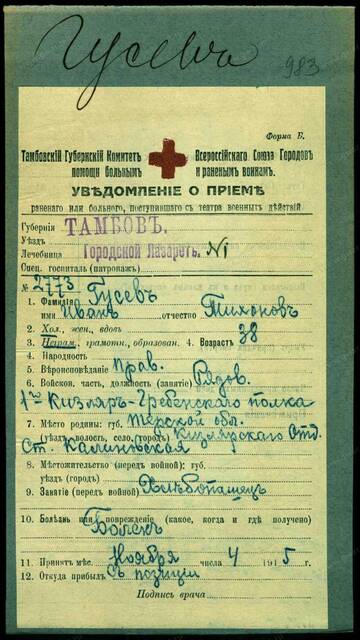 Гусевъ
983
Форма Б.
Тамбовскій Губернскій Комитетъ Всероссійскаго Союза Городовъ
помощи больнымъ и раненымъ воинамъ.
УВѢДОМЛЕНІЕ О ПРІЕМѢ
раненаго или больного, поступившаго съ театра военныхъ дѣйствій.
Губернія ТАМБОВЪ.
Уѣздъ
Лечебница Городской Лазаретъ. №1
Спец. госпиталь (патронажъ)
№ 2773
1. Фамилія Гусевъ
имя Иванъ отчество Тихоновъ
2. Хол., жен., вдовъ
3. Неграм., грамотн., образован. 4. Возрастъ 38
4. Народность
5. Вѣроисповѣданіе прав.
6. Войсков. часть, должность (занятіе) Рядов.
1го Кизляр-Гребенскаго полка
7. Мѣсто родины: губ. Терской обл.
(уѣздъ, волость, село, городъ) Кизлярскаго Отд.
Ст. Калиновская
8. Мѣстожительство (передъ войной): губ.
уѣздъ (городъ)
9. Занятіе (передъ войной) Хлѣбопашецъ
10. Болѣзнь или поврежденіе (какое, когда и гдѣ получено)
Боленъ
11. Принятъ мѣс. Ноября числа 4 1915 г.
12. Откуда прибылъ Съ позиціи
Подпись врача